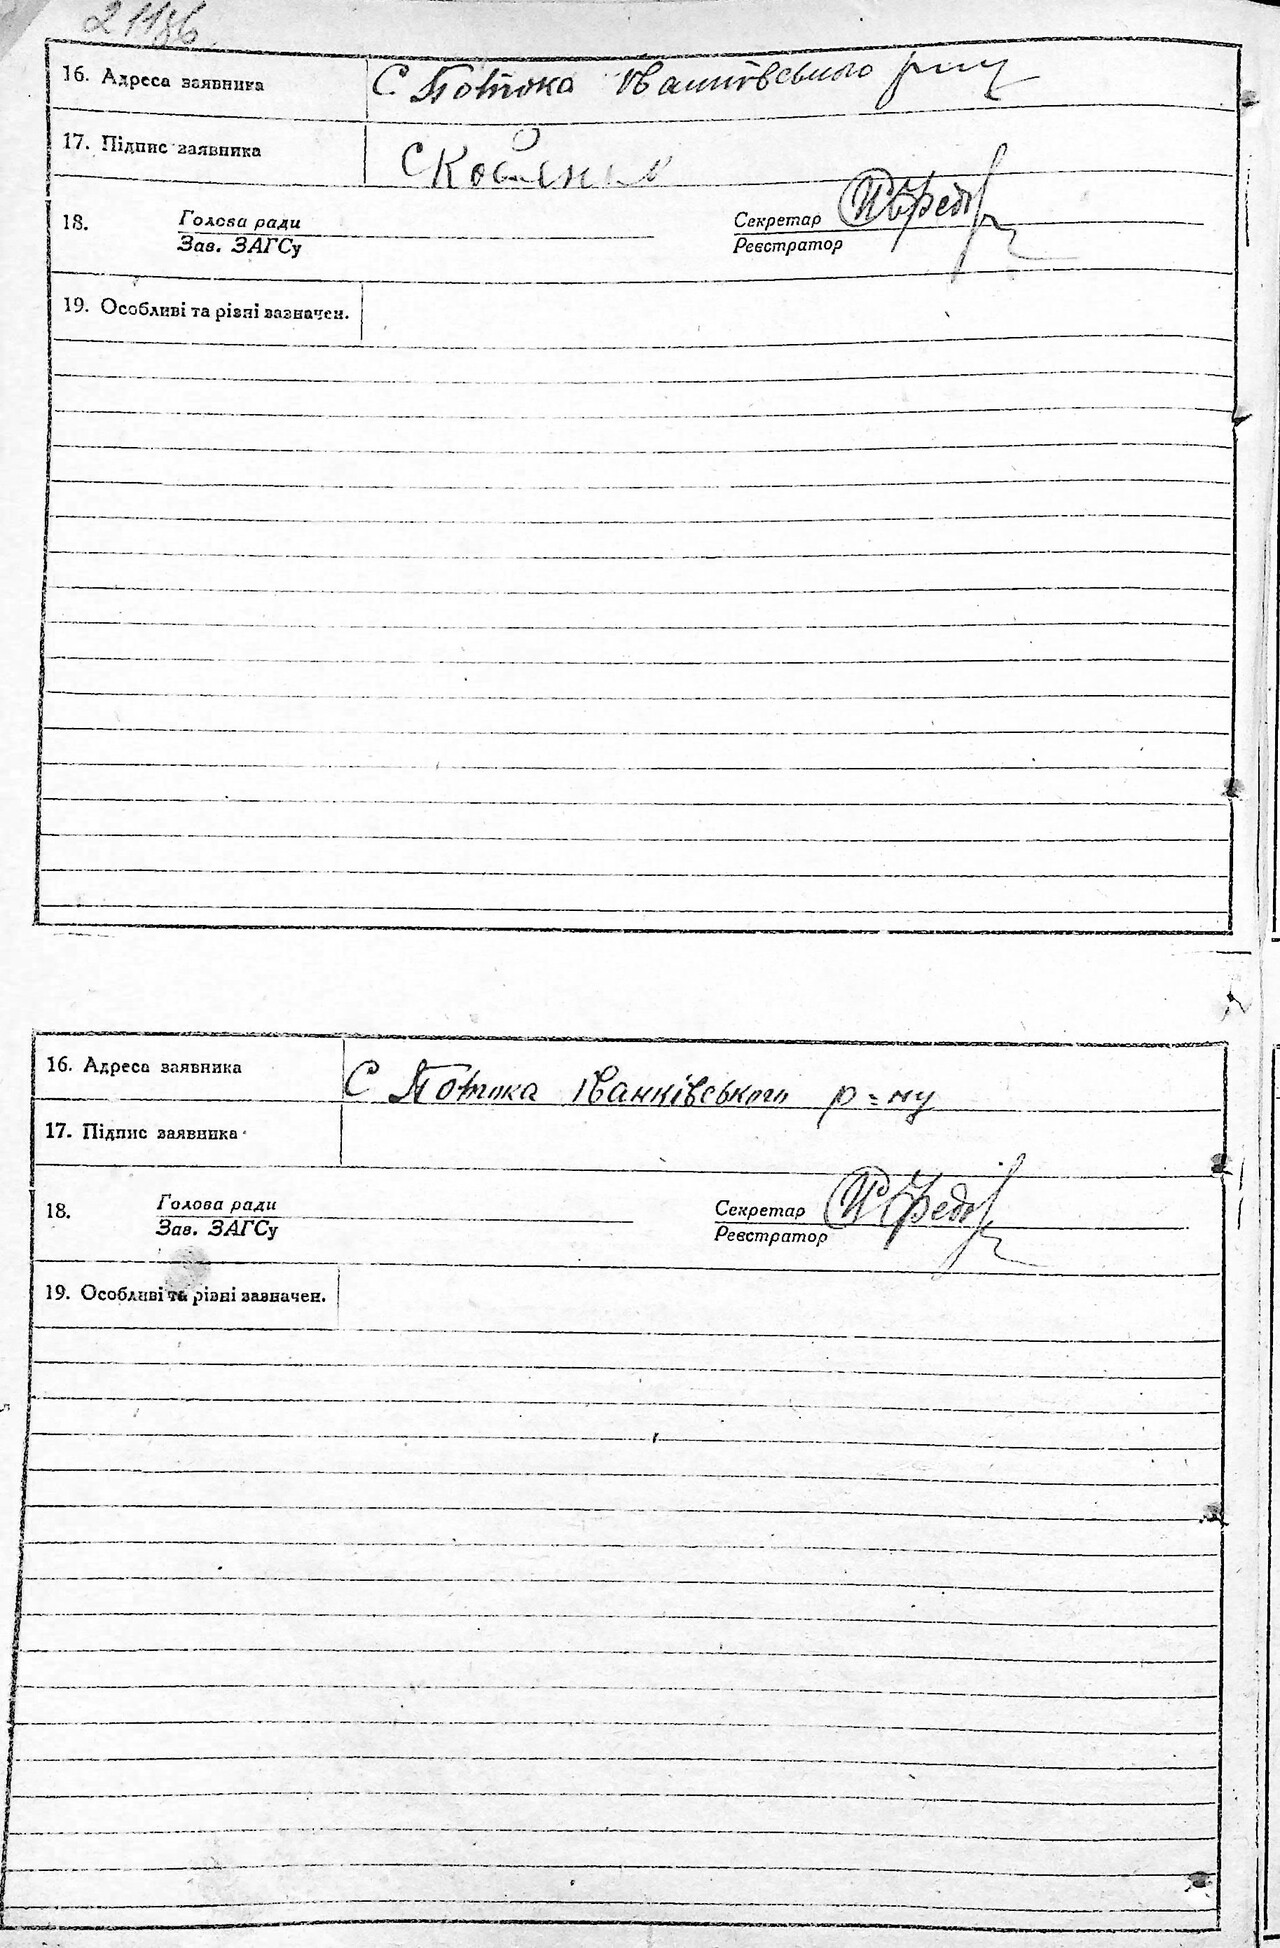 211зв.
16. Адреса заявника С Потока Іванківського р-ну
17. Підпис заявника
18. Голова ради Секретар
Зав. ЗАГСу Реєстратор
19. Особливі та різні зазначен.
16. Адреса заявника С Потока Іванківського р=ну
17. Підпис заявника
18. Голова ради Секретар
Зав. ЗАГСу Реєстратор
19. Особливі та різні зазначен.